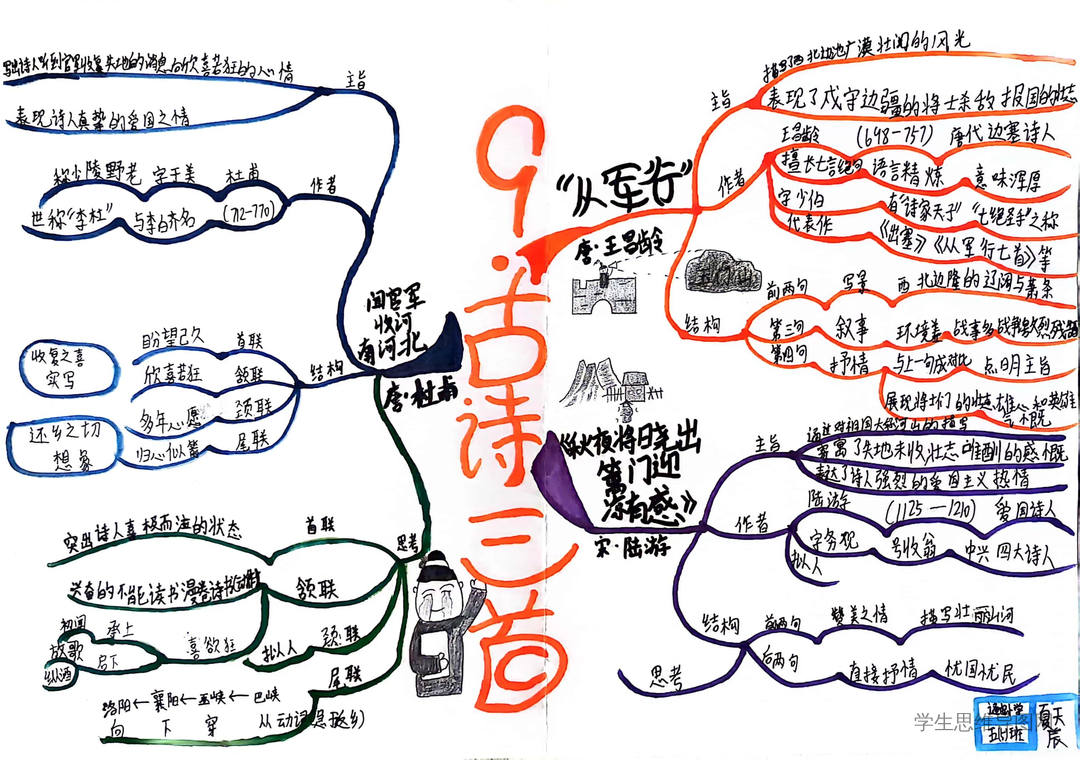 9.古诗三首
"从军行"
唐·王昌龄
主旨
描写了西北边地广漠壮阔的风光
表现了戍守边疆的将士杀敌报国的壮志
作者
王昌龄 (698-757) 唐代边塞诗人
擅长七言绝句 语言精炼 意味浑厚
字少伯 有"诗家天子" "七绝圣手"之称
代表作 《出塞》《从军行七首》等
结构
前两句 写景 西北边陲的辽阔与萧条
第三句 叙事 环境差 战事多
第四句 抒情 与上一句成对比 点明主旨
展现将士们的壮志雄心和英雄气概
玉门山
《秋夜将晓出
篱门迎
凉有感》
宋·陆游
主旨
寄寓了失地未收壮志难酬的感慨
表达了诗人强烈的爱国主义热情
作者
陆游 (1125—1210) 爱国诗人
字务观 号放翁 中兴四大诗人
拟人
结构
前两句 赞美之情 描写壮丽山河
后两句 直接抒情 忧国忧民
思考
闻官军
收河
南河北
唐·杜甫
主旨
写出诗人听到官军收复失地的消息后欣喜若狂的心情
表现诗人真挚的爱国之情
作者
称少陵野老 字子美 杜甫
世称"李杜" 与李白齐名 (712-770)
结构
盼望已久 首联
欣喜若狂 颔联
多年心愿 颈联
归心似箭 尾联
收复之喜
实写
还乡之切
想象
思考
突出诗人喜极而泣的状态 首联
兴奋的不能读书 漫卷诗书 颔联
初闻 承上
放歌 启下
纵酒
喜欲狂
拟人 颈联
尾联
洛阳←襄阳←巫峡←巴峡
向 下 穿 从动词
夏天辰
学生思维导图